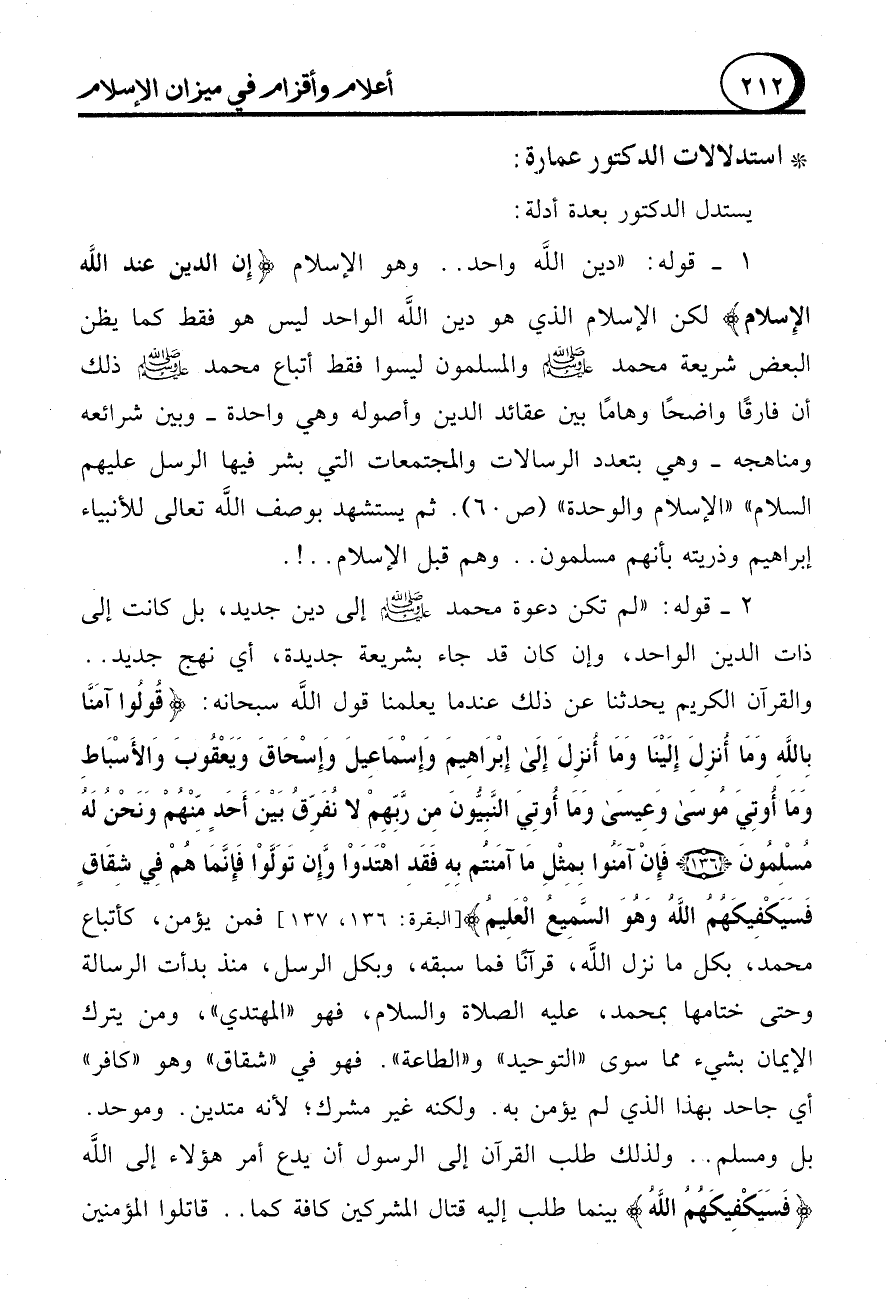 ٢١٢
أعلام وأقزام في ميزان الإسلام
* استدلالات الدكتور عمارة:
يستدل الدكتور بعدة أدلة:
١ ـ قوله: «دين اللَّه واحد.. وهو الإسلام ﴿إن الدين عند الله
الإسلام﴾ لكن الإسلام الذي هو دين اللَّه الواحد ليس هو فقط كما يظن
البعض شريعة محمد ﷺ والمسلمون ليسوا فقط أتباع محمد ﷺ ذلك
أن فارقًا واضحًا وهامًا بين عقائد الدين وأصوله وهي واحدة ـ وبين شرائعه
ومناهجه ـ وهي بتعدد الرسالات والمجتمعات التي بشر فيها الرسل عليهم
السلام» «الإسلام والوحدة» (ص٦٠). ثم يستشهد بوصف اللَّه تعالى للأنبياء
إبراهيم وذريته بأنهم مسلمون.. وهم قبل الإسلام..!.
٢ ـ قوله: «لم تكن دعوة محمد ﷺ إلى دين جديد، بل كانت إلى
ذات الدين الواحد، وإن كان قد جاء بشريعة جديدة، أي نهج جديد..
والقرآن الكريم يحدثنا عن ذلك عندما يعلمنا قول اللَّه سبحانه: ﴿قُولُوا آمَنَّا
بِاللَّهِ وَمَا أُنزِلَ إِلَيْنَا وَمَا أُنزِلَ إِلَىٰ إِبْرَاهِيمَ وَإِسْمَاعِيلَ وَإِسْحَاقَ وَيَعْقُوبَ وَالأَسْبَاطِ
وَمَا أُوتِيَ مُوسَىٰ وَعِيسَىٰ وَمَا أُوتِيَ النَّبِيُّونَ مِن رَّبِّهِمْ لا نُفَرِّقُ بَيْنَ أَحَدٍ مِّنْهُمْ وَنَحْنُ لَهُ
مُسْلِمُونَ ﴿١٣٦﴾ فَإِنْ آمَنُوا بِمِثْلِ مَا آمَنتُم بِهِ فَقَدِ اهْتَدَوْا وَّإِن تَوَلَّوْا فَإِنَّمَا هُمْ فِي شِقَاقٍ
فَسَيَكْفِيكَهُمُ اللَّهُ وَهُوَ السَّمِيعُ الْعَلِيمُ﴾[البقرة: ١٣٦، ١٣٧] فمن يؤمن، كأتباع
محمد، بكل ما نزل اللَّه، قرآنًا فما سبقه، وبكل الرسل، منذ بدأت الرسالة
وحتى ختامها بمحمد، عليه الصلاة والسلام، فهو «المهتدي»، ومن يترك
الإيمان بشيء مما سوى «التوحيد» و«الطاعة». فهو في «شقاق» وهو «كافر»
أي جاحد بهذا الذي لم يؤمن به. ولكنه غير مشرك؛ لأنه متدين. وموحد.
بل ومسلم.. ولذلك طلب القرآن إلى الرسول أن يدع أمر هؤلاء إلى اللَّه
﴿فَسَيَكْفِيكَهُمُ اللَّهُ﴾ بينما طلب إليه قتال المشركين كافة كما.. قاتلوا المؤمنين